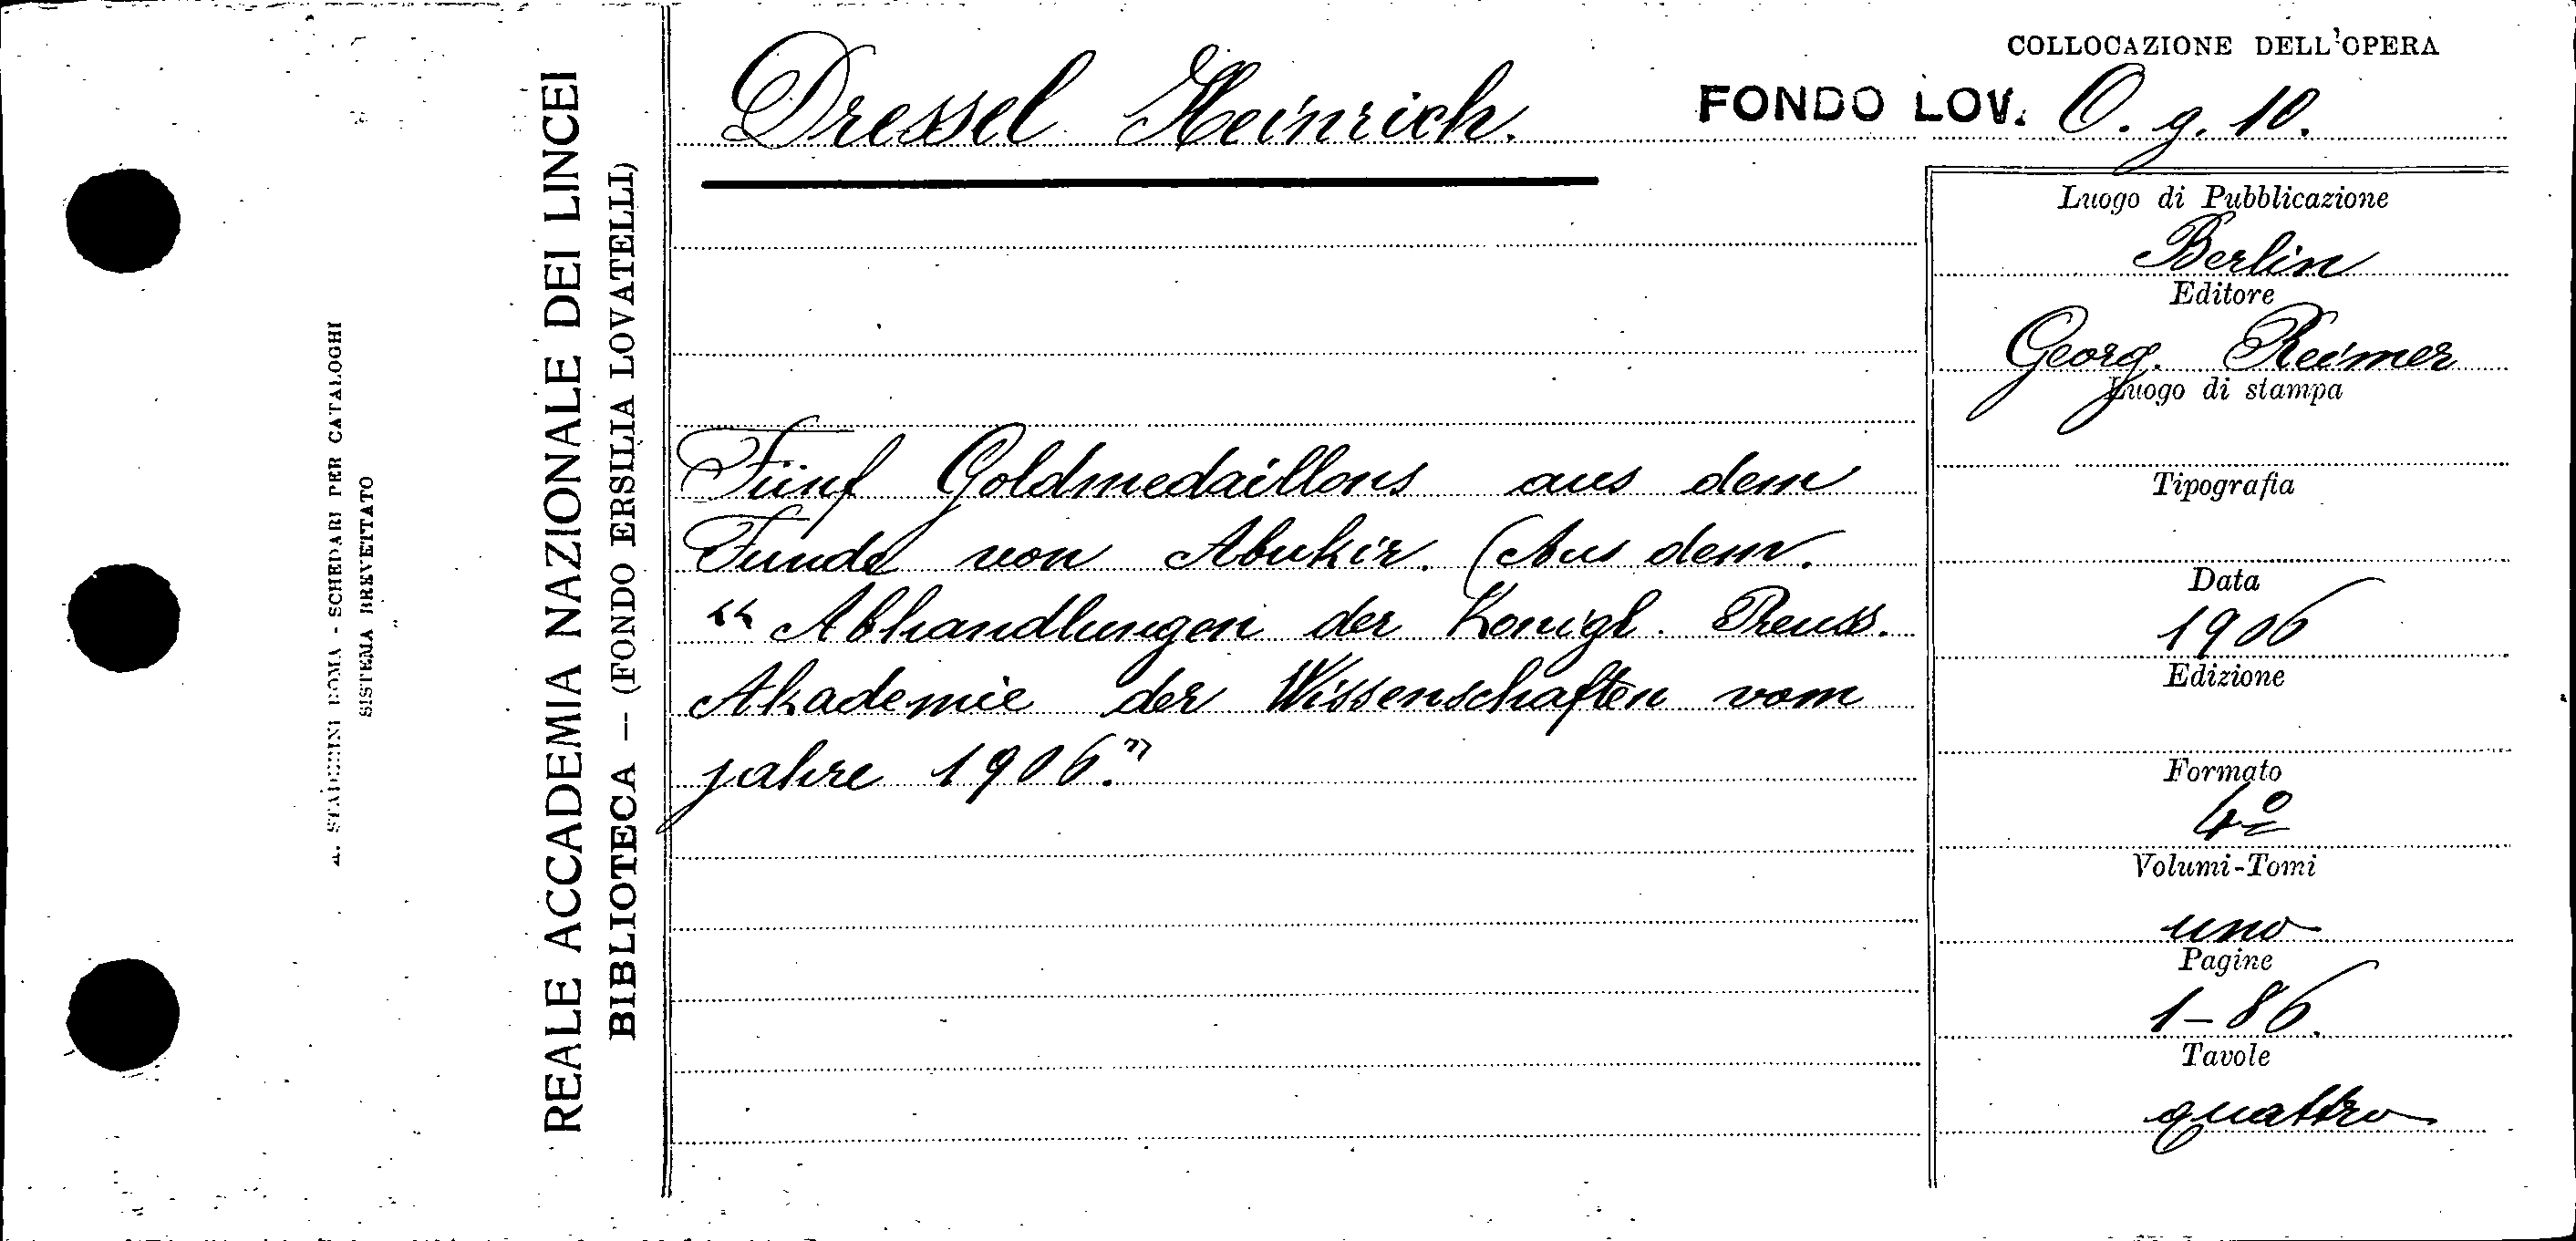 COLLOCAZIONE DELL'OPERA
Dressel Heinrich. FONDO LOV. O. g. 10.
Fünf Goldmedaillons aus dem
Funde von Abukir. (Aus dem.
“ Abhandlungen der Konigl. Preuss.
Akademie der Wissenschaften vom
jahre 1906.”
Luogo di Pubblicazione
Berlin
Editore
Georg. Reimer
Luogo di stampa
Tipografia
Data
1906
Edizione
Formato
4º
Volumi-Tomi
uno
Pagine
1-86.
Tavole
quattro
REALE ACCADEMIA NAZIONALE DEI LINCEI
BIBLIOTECA — (FONDO ERSILIA LOVATELLI)
A. STADERINI ROMA - SCHEDARI PER CATALOGHI
SISTEMA BREVETTATO